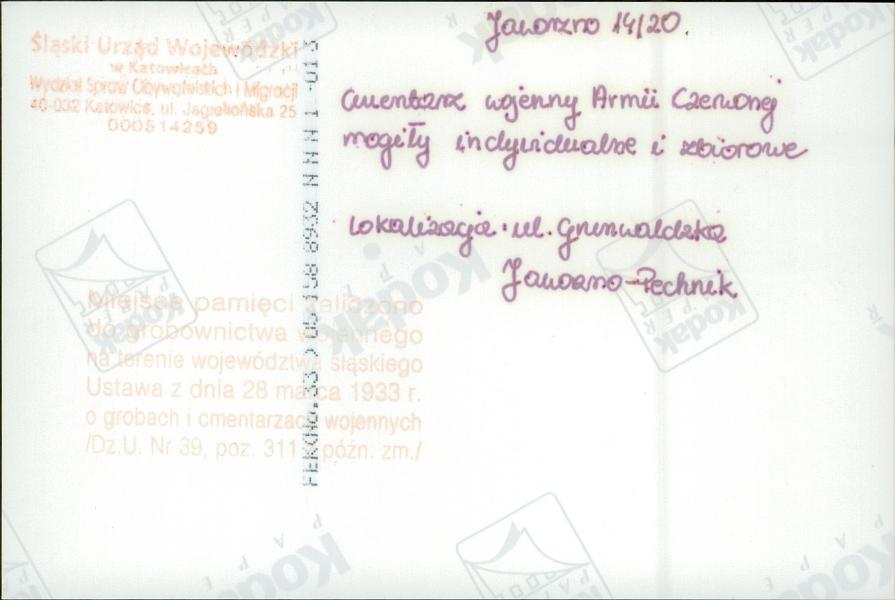 Jaworzno 14/20.
Śląski Urząd Wojewódzki
w Katowicach
Wydział Spraw Obywatelskich i Migracji
40-032 Katowice, ul. Jagiellońska 25
000514259
Cmentarz wojenny Armii Czerwonej
mogiły indywidualne i zbiorowe
Lokalizacja: ul. Grunwaldzka
Jaworzno-Pechnik
Miejsce pamięci zaliczono
do grobownictwa wojennego
na terenie województwa śląskiego
Ustawa z dnia 28 marca 1933 r.
o grobach i cmentarzach wojennych
/Dz.U. Nr 39, poz. 311 późn. zm./
Kodak